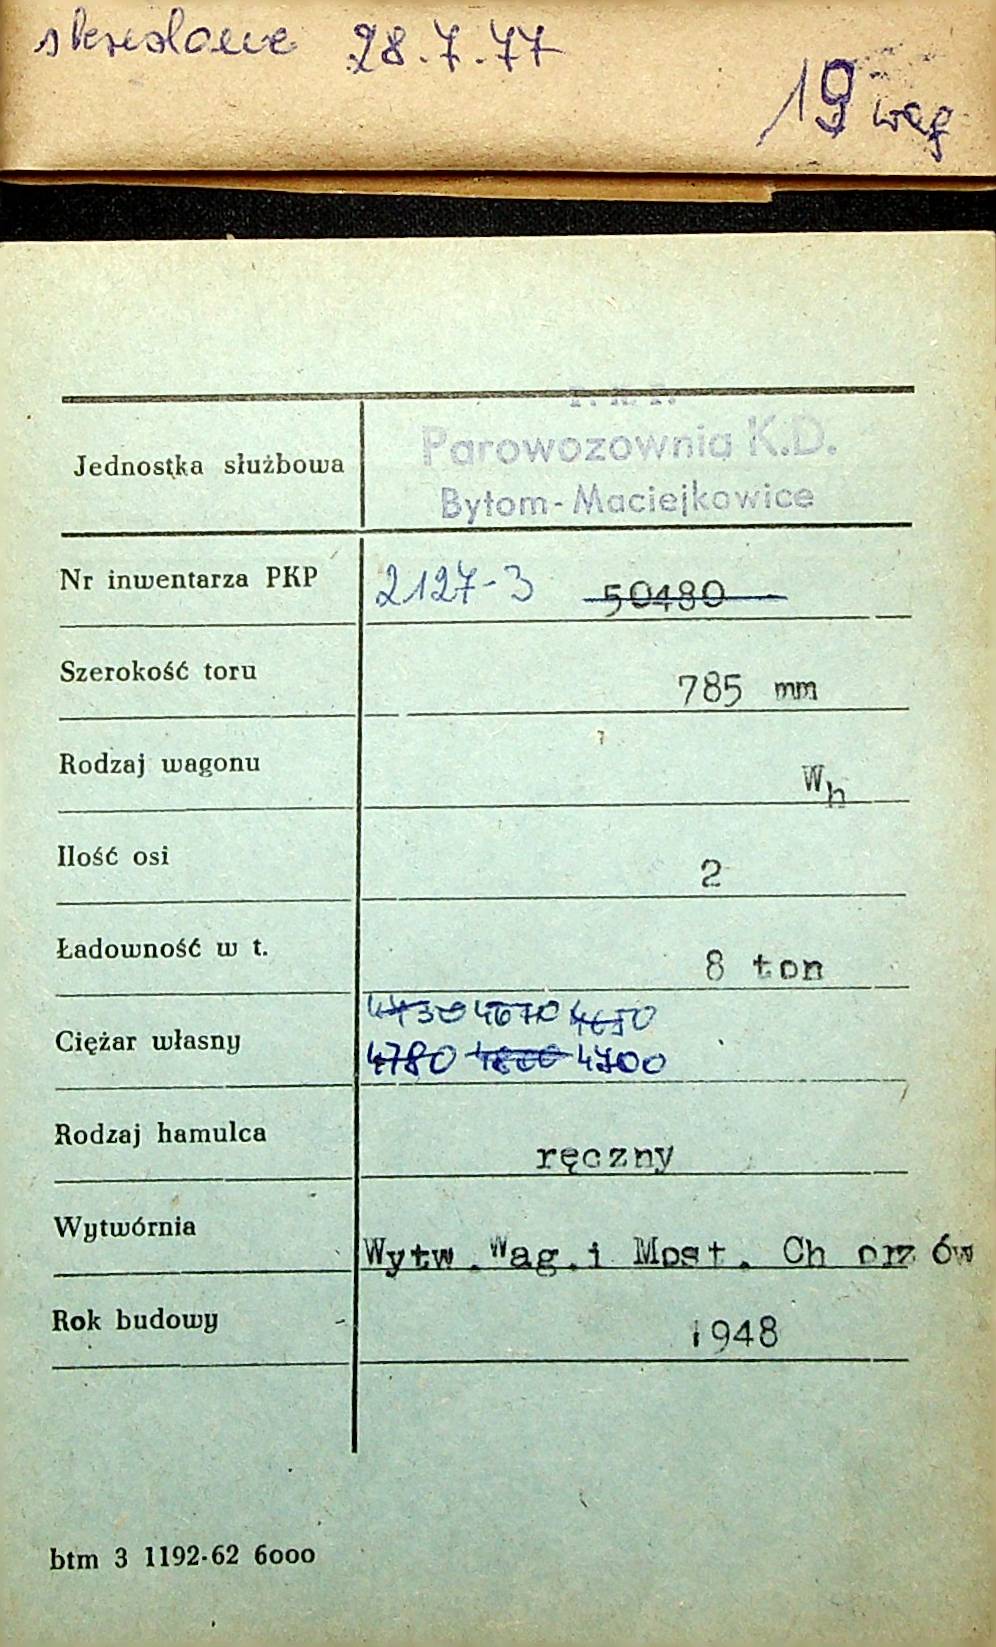 skreślone 28.7.77
19 wag
P. K. P.
Parowozownia K.D.
Jednostka służbowa
Bytom-Maciejkowice
Nr inwentarza PKP 2127-3 50480
Szerokość toru 785 mm
Rodzaj wagonu Wh
Ilość osi 2
Ładowność w t. 8 ton
4730 4670 4650
Ciężar własny
4780 4700
Rodzaj hamulca ręczny
Wytwórnia Wytw.Wag.i Most. Ch orz ów
Rok budowy 1948
btm 3 1192-62 6000